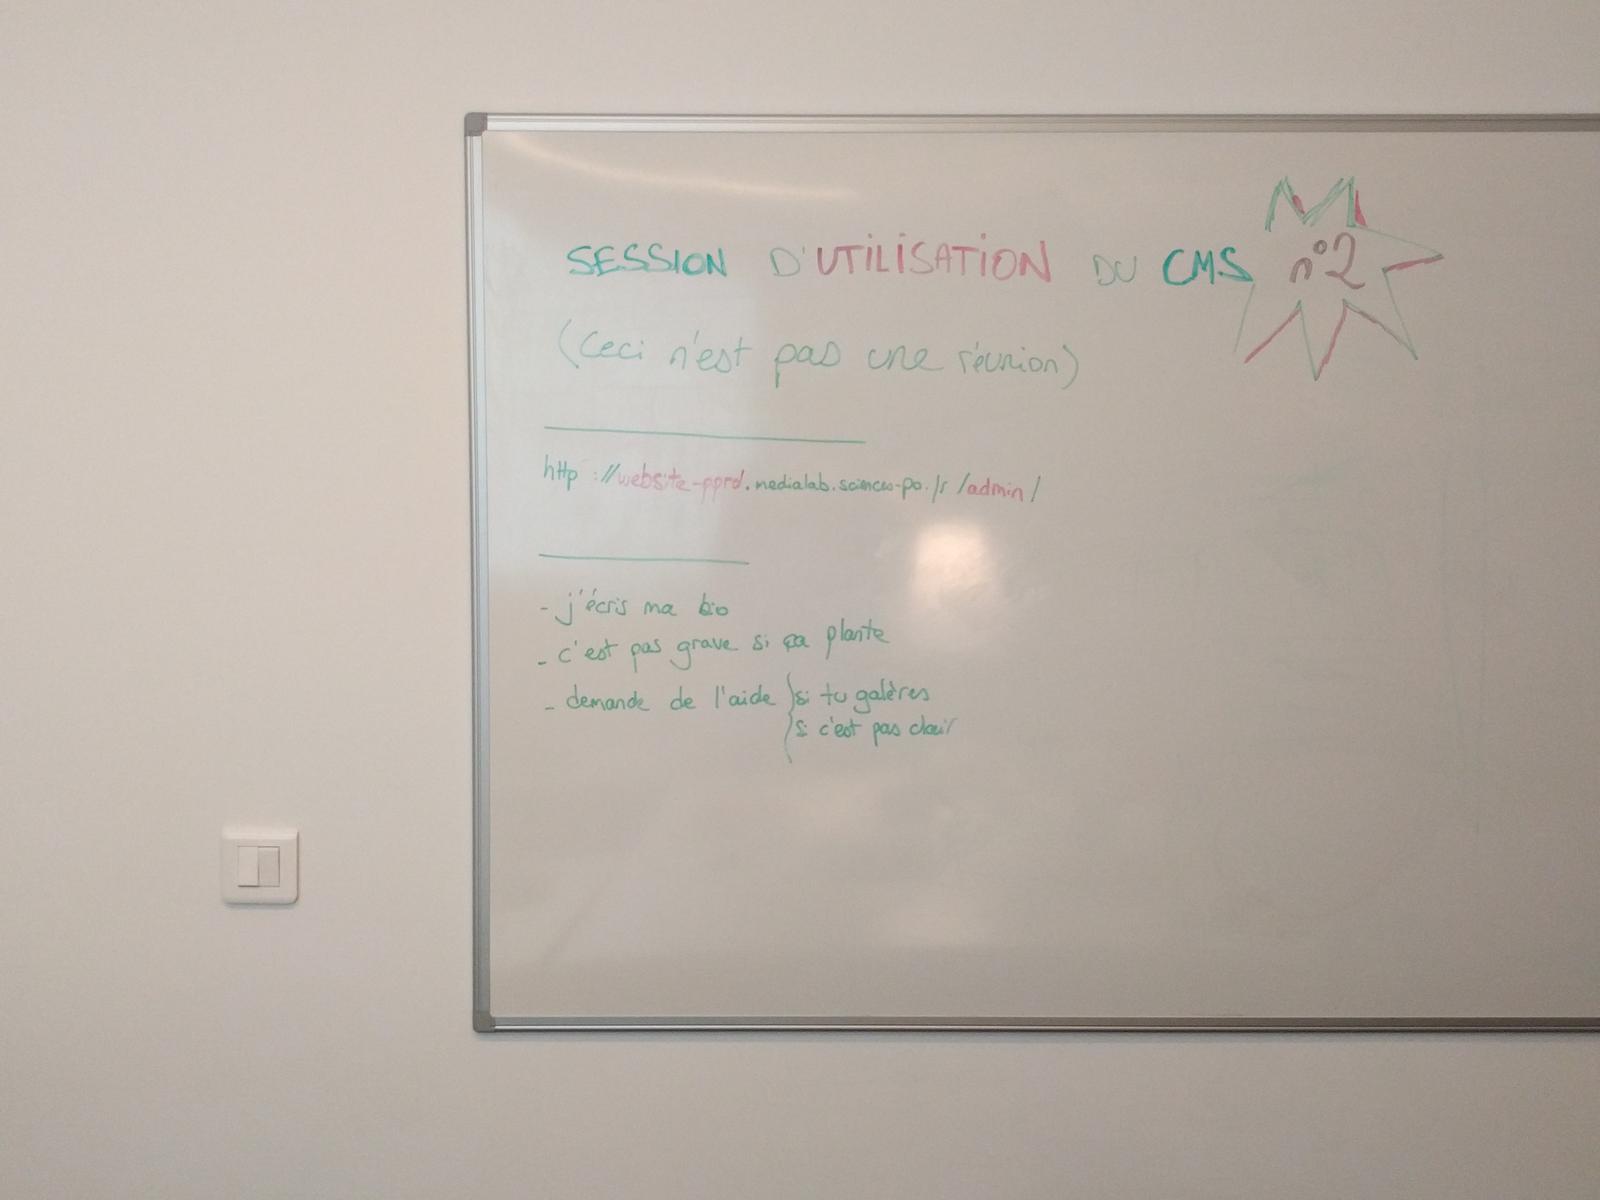 SESSION D'UTILISATION DU CMS n°2
(Ceci n'est pas une réunion)
http://website-pprd.medialab.sciences-po.fr/admin/
- j'écris ma bio
- c'est pas grave si ça plante
- demande de l'aide } si tu galères
si c'est pas clair